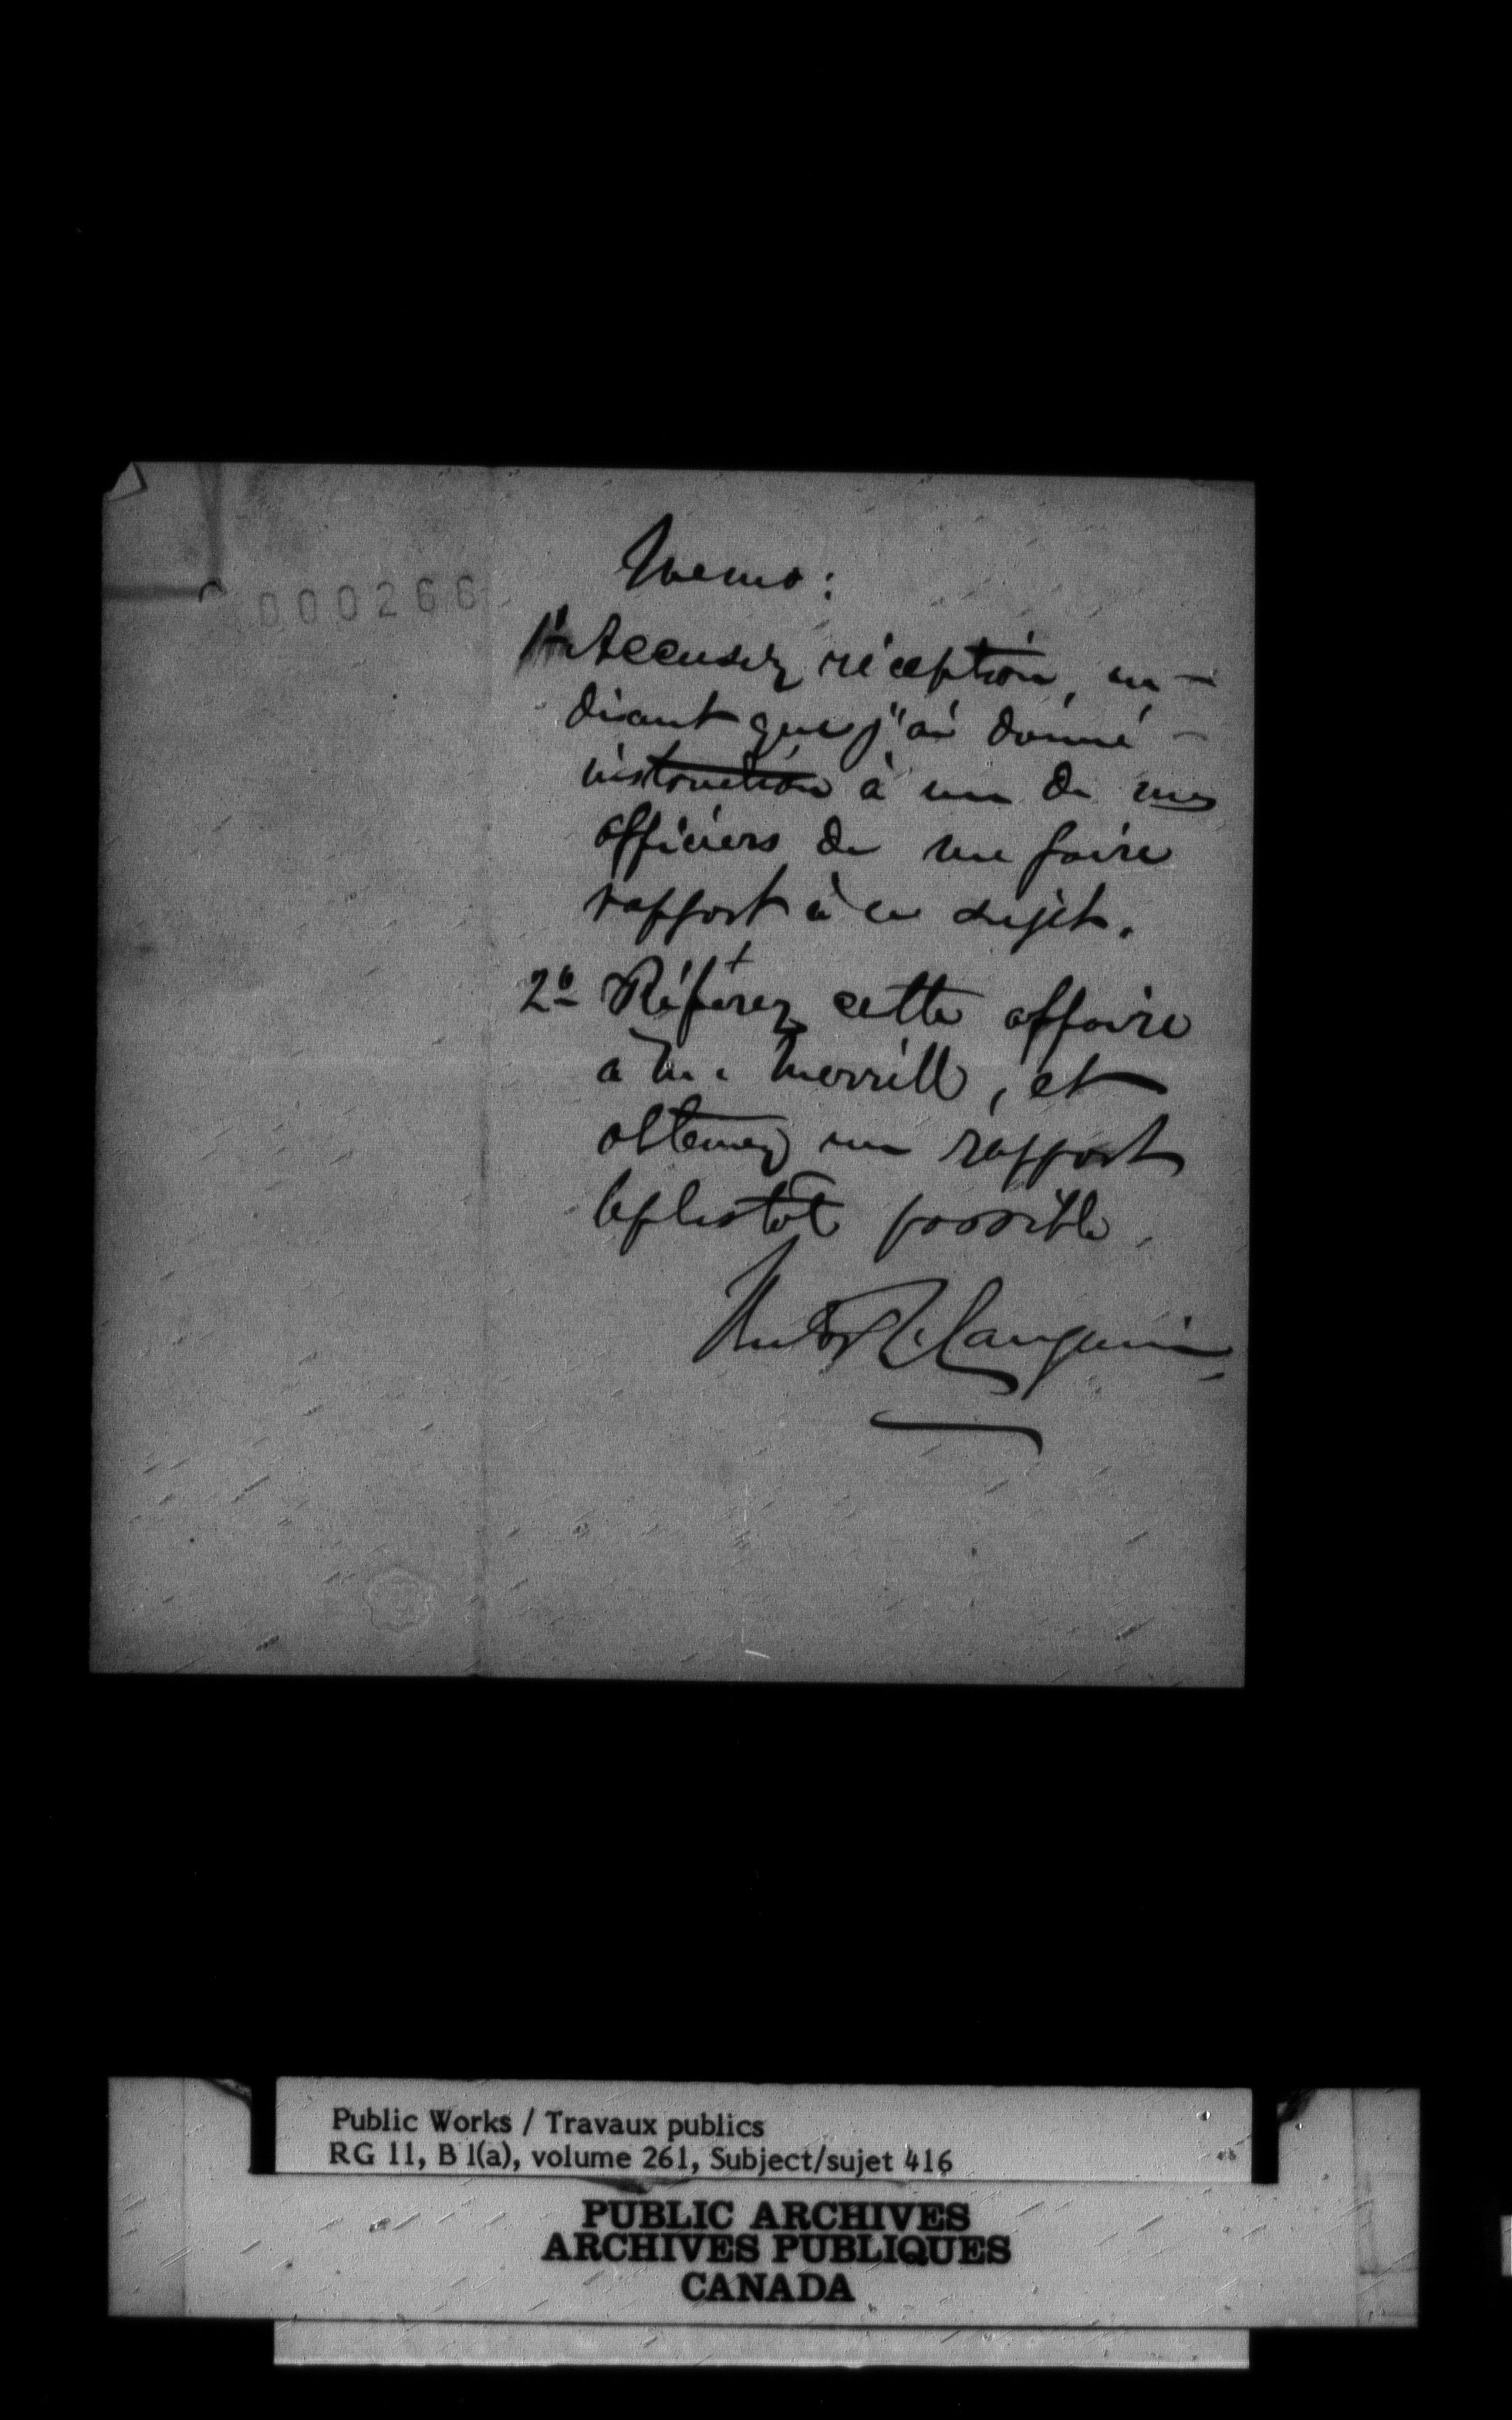 000266
Memo:
1º Accusez réception, en
disant que j'ai donné
instruction à un de mes
officiers de me faire
rapport à ce sujet.
2º Référez cette affaire
à M. Merrill, et
obtenez un rapport
leplustôt possible.
Hector L. Langevin
Public Works / Travaux publics
RG 11, B 1(a), volume 261, Subject/sujet 416
PUBLIC ARCHIVES
ARCHIVES PUBLIQUES
CANADA